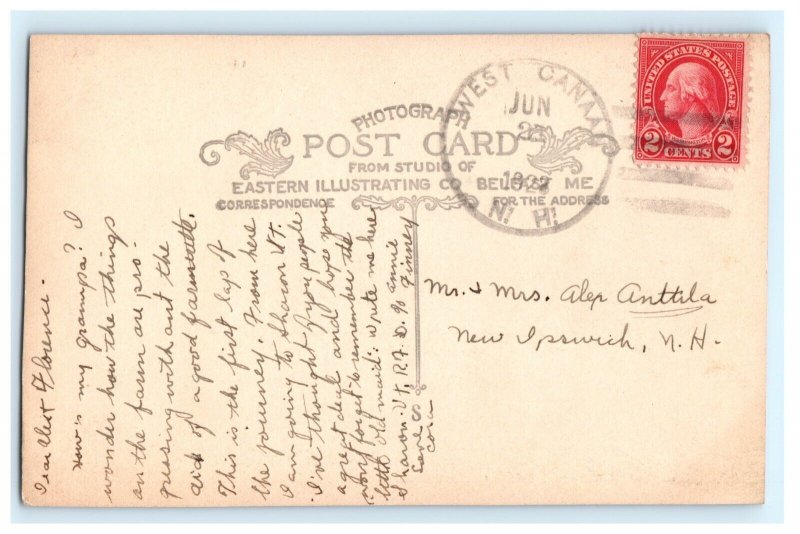 WEST CANAAN
JUN
1927
N. H.
UNITED STATES POSTAGE
2 CENTS 2
PHOTOGRAPH
POST CARD
FROM STUDIO OF
EASTERN ILLUSTRATING CO. BELFAST ME
CORRESPONDENCE
FOR THE ADDRESS
Dear Florence.
How is my grampa? I
wonder how the things
on the farm are pro-
gressing without the
aid of a good farm
This is the first lap of
the journey. From here
I am going to Sharon Vt.
I've thought of you people
a great deal and hope you
won't forget to remember the
little old maid. Write me here
Sharon, Vt, R.F.D. % Annie
Finney
Love
Cora
Mr. & Mrs. Alex Anttila
New Ipswich, N. H.